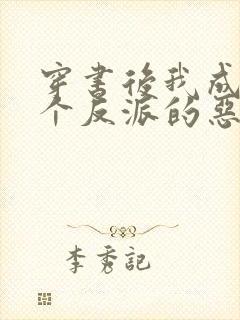 穿書後我成
个反派的惡
李秀記